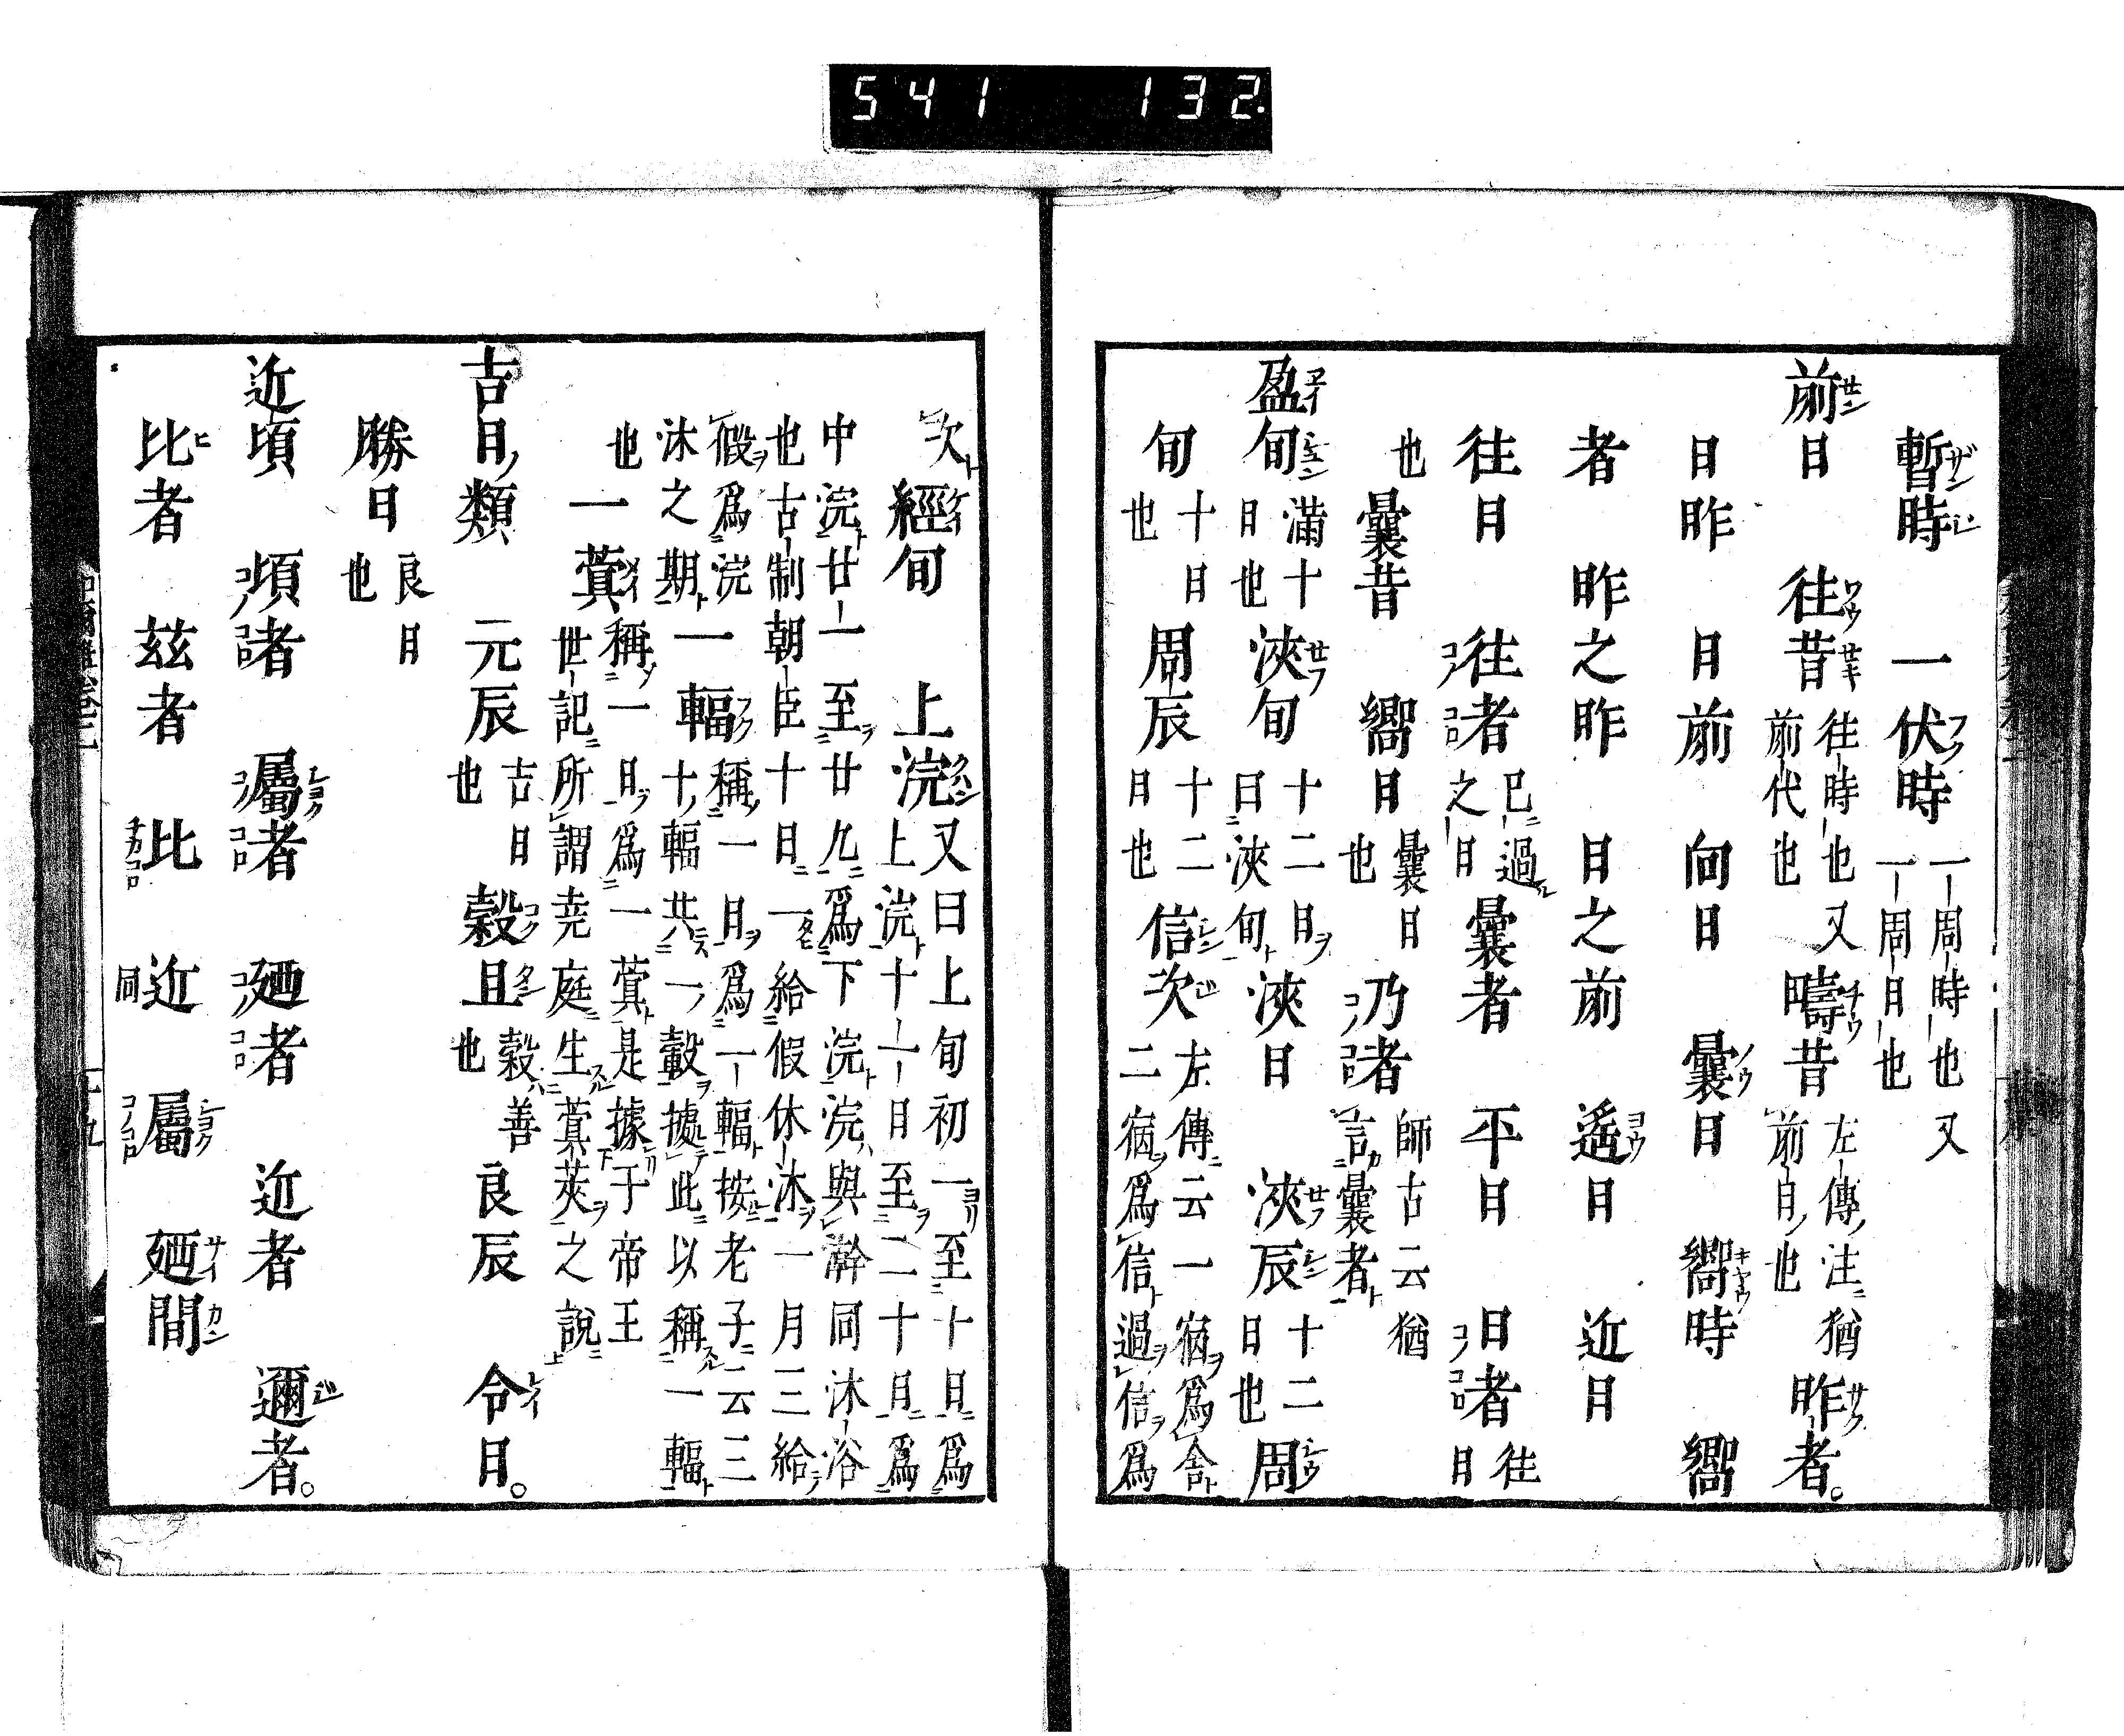 541 132.
暫時 一伏時 一周時也又一周日也
前日 往昔 往時也又前代也 疇昔 左傳注猶前日也 昨者。
日昨 日前 向日 曩日 嚮時 嚮
者 昨之昨 日之前 遙日 近日
往日 往者 已過之日 曩者 平日 日者 往日
也 曩昔 嚮日 曩日也 乃者 師古云猶言曩者
盈旬 滿十日也 浹旬 十二日曰浹旬 浹日 浹辰 十二日也 周
旬 十日也 周辰 十二日也 信次 左傳云一宿爲舍二宿爲信過信爲
次 經旬 上浣 又曰上旬初一至十日爲上浣十一日至二十日爲
中浣廿一至廿九爲下浣浣與澣同沐浴
也古制朝臣十日一給假休沐一月三給
假爲浣 一輻 稱一月爲一輻按老子云三
沐之期 十輻共一轂據此以稱一輻
也 一蓂 稱一日爲一蓂是據于帝王
世記所謂堯庭生蓂莢之說
吉日類 元辰 吉日也 穀旦 穀善也 良辰 令日。
勝日 良日也
近頃 頃者 屬者 廼者 近者 邇者。
比者 茲者 比 近 同 屬 廼間